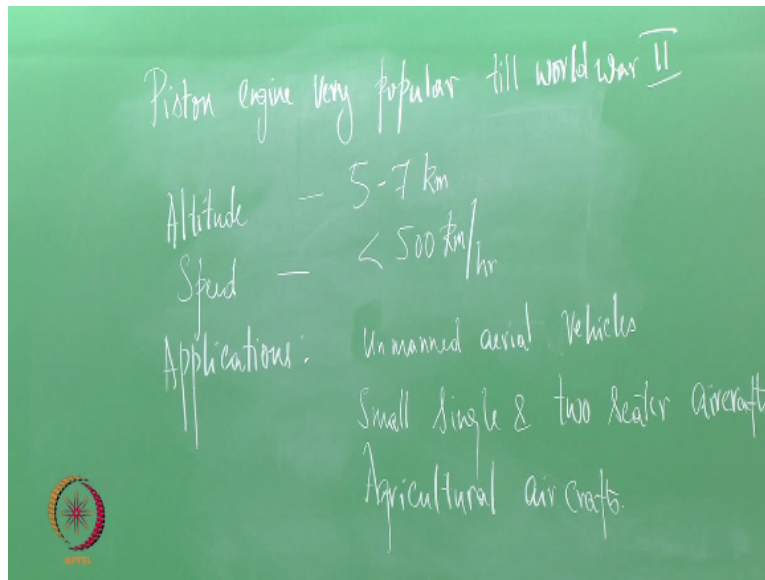 Piston engine very popular till world war II
Altitude — 5-7 km
Speed — < 500 km/hr
Applications: Unmanned aerial vehicles
Small Single & two seater aircraft
Agricultural air crafts.
NPTEL